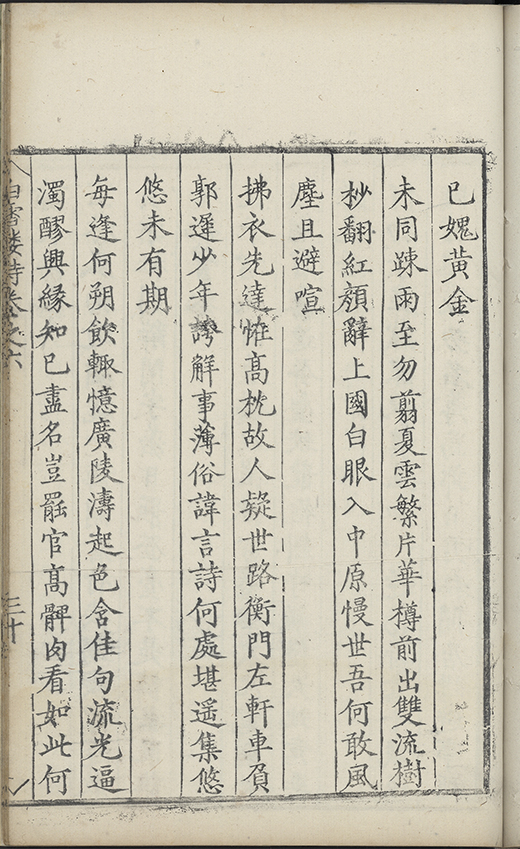 已媿黃金
未同踈雨至勿翦夏雲繁片華樽前出雙流樹
杪翻紅顏辭上國白眼入中原慢世吾何敢風
塵且避喧
拂衣先達惟高枕故人疑世路衡門左軒車負
郭遲少年誇解事薄俗諱言詩何處堪遥集悠
悠未有期
每逢何朔飲輙憶廣陵濤起色含佳句流光逼
濁醪興緣知己盡名豈罷官高髀肉看如此何
白雪樓詩卷之六
三十